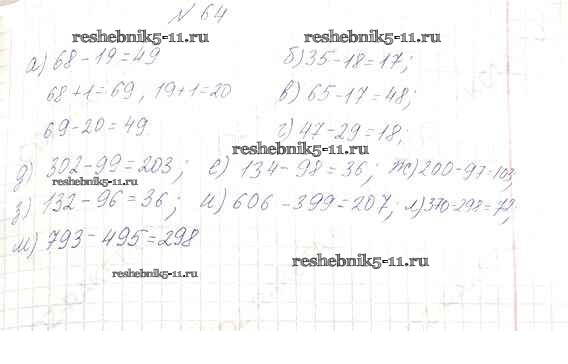 № 64
reshebnik5-11.ru reshebnik5-11.ru
а) 68-19=49 б) 35-18=17;
68+1=69, 19+1=20 в) 65-17=48;
69-20=49 г) 47-29=18;
reshebnik5-11.ru
д) 302-99=203; е) 134-98=36; ж) 200-97=103;
reshebnik5-11.ru
з) 132-96=36; и) 606-399=207; л) 370-298=72;
м) 793-495=298
reshebnik5-11.ru
reshebnik5-11.ru